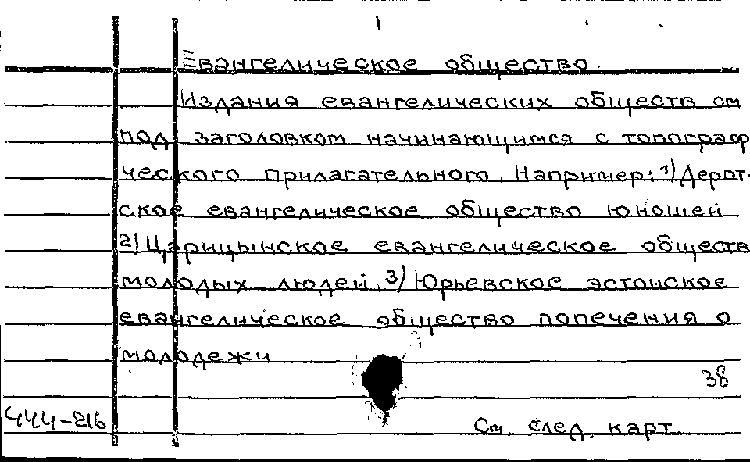 1
Евангелическое общество.
Издания евангелических обществ см
под заголовком начинающимся с топограф
ческого прилагательного. Например: 1) Дерпт-
ское евангелическое общество юношей
2) Царицынское евангелическое обществ
молодых людей, 3) Юрьевское эстонское
евангелическое общество попечения о
молодежи
38
444-216
См. след. карт.